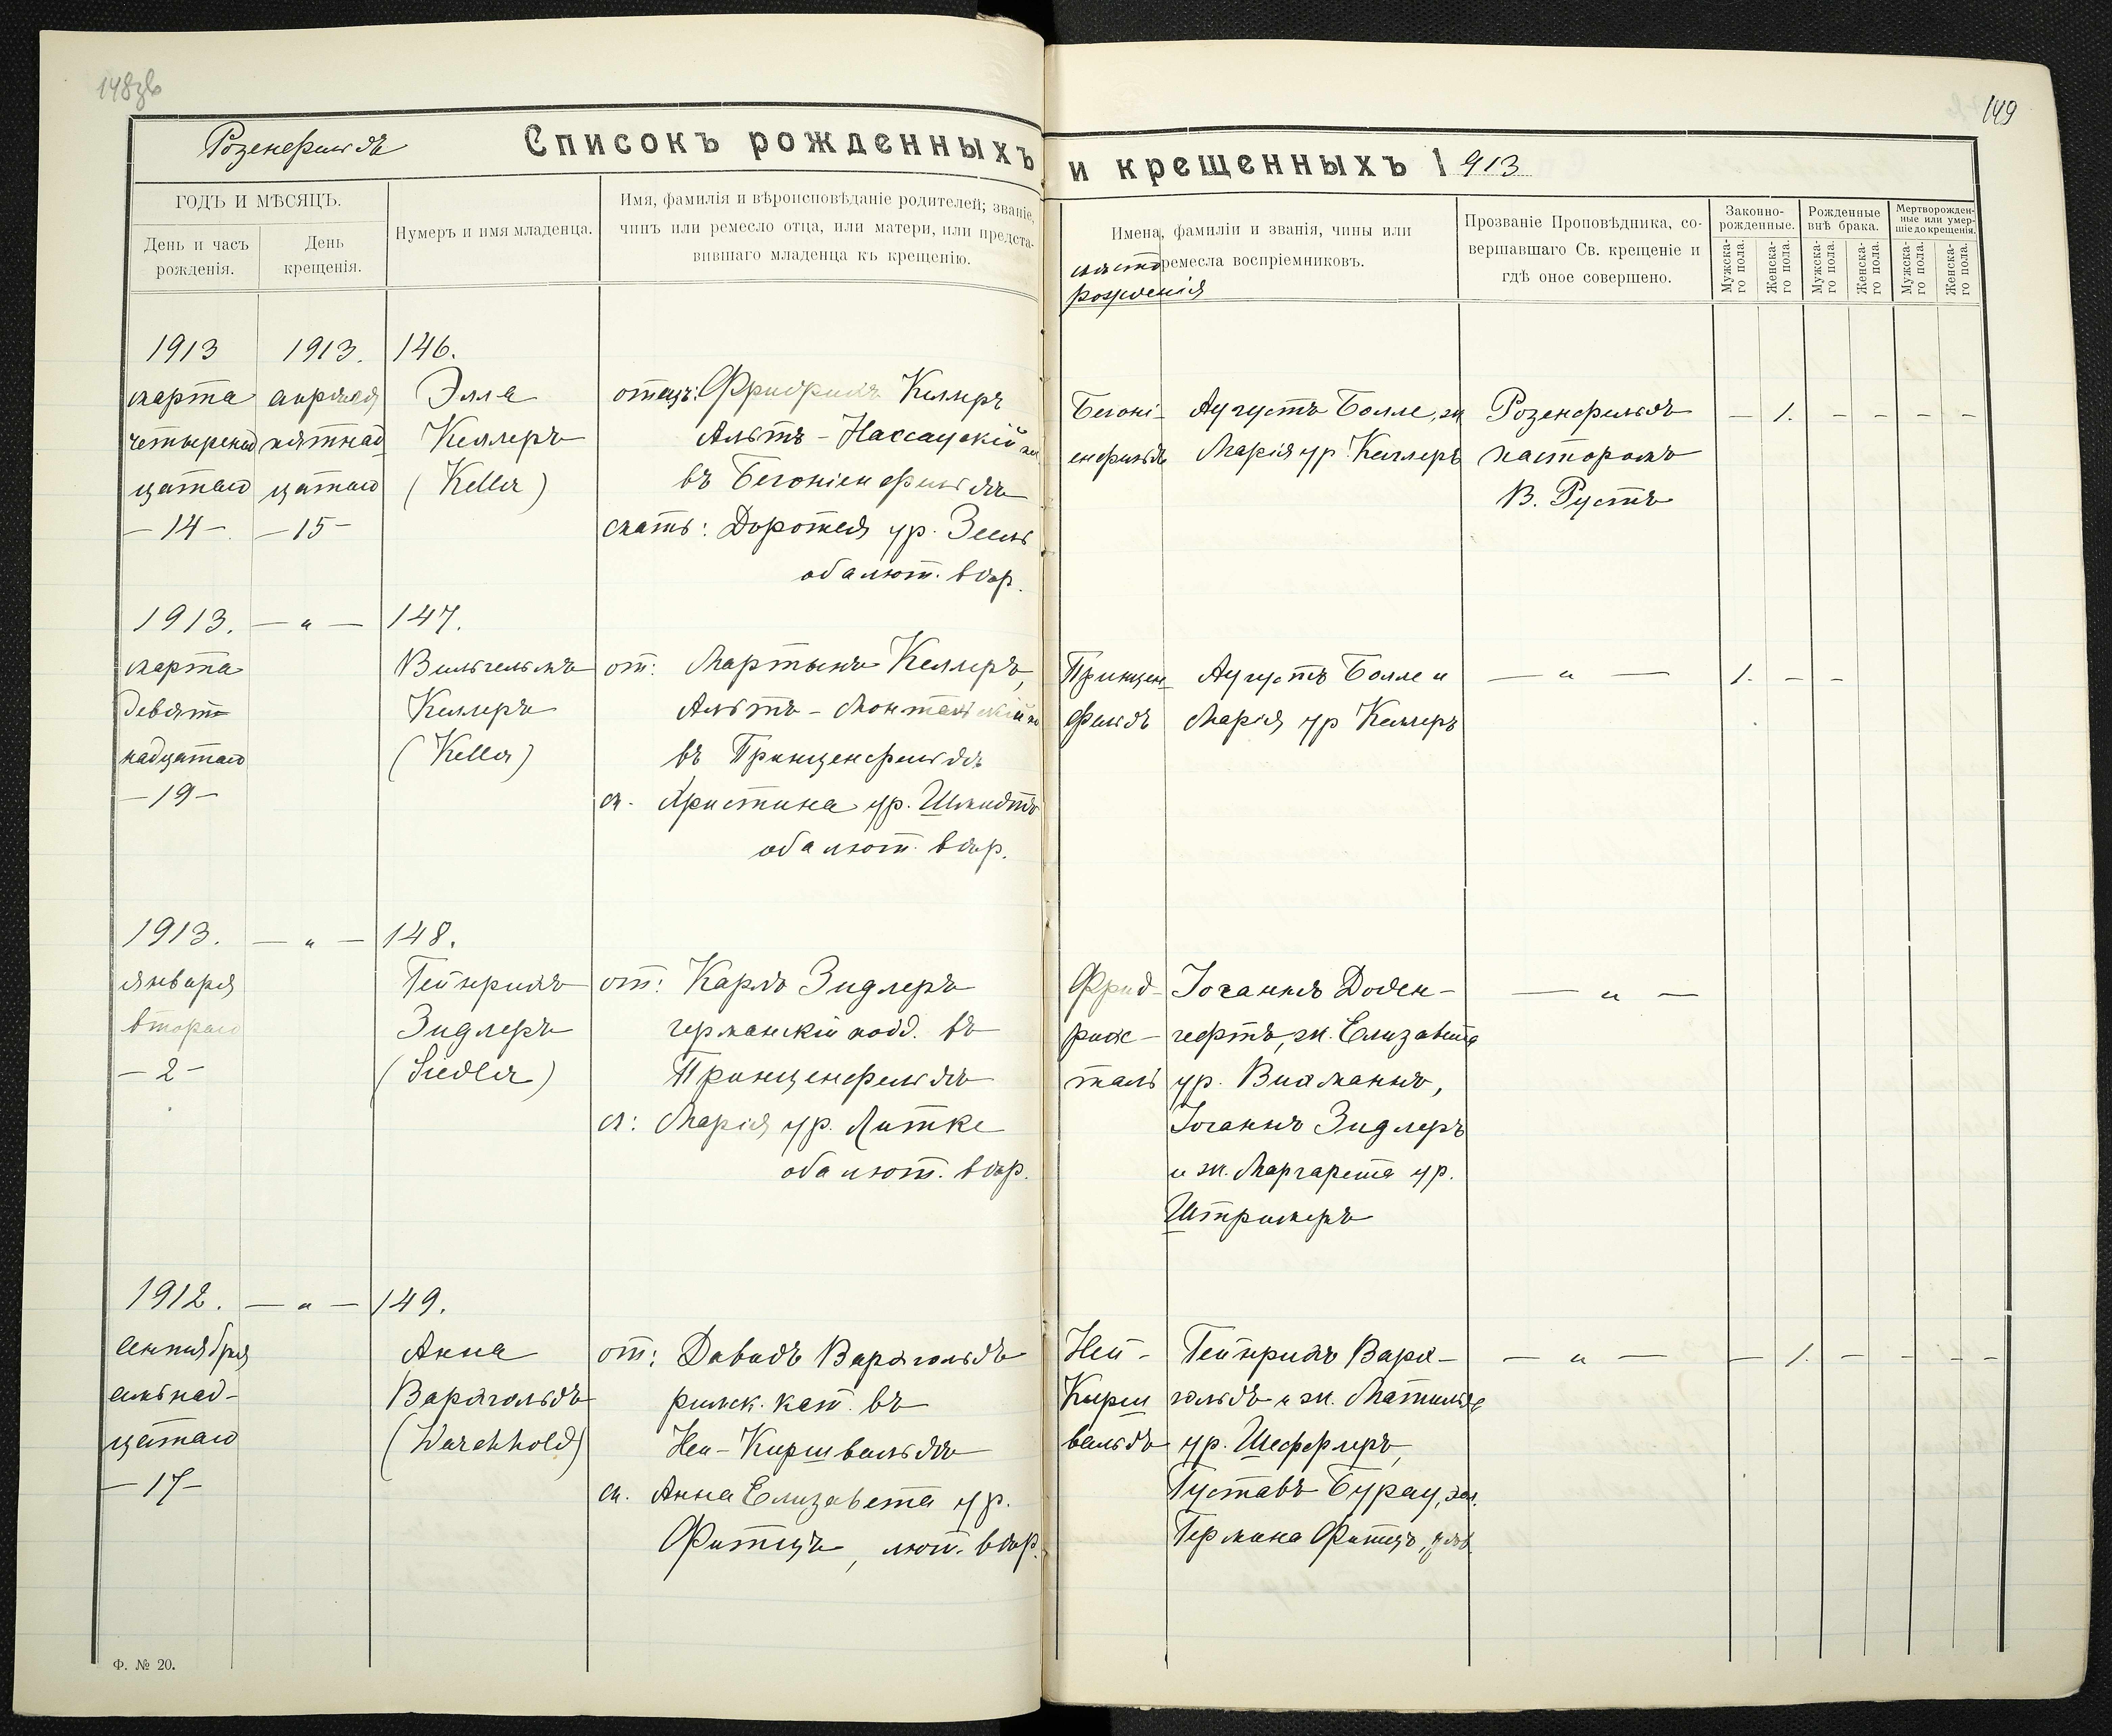 148зв
149
Розенфельдъ
Списокъ рожденныхъ и крещенныхъ 1913
ГОДЪ И МѢСЯЦЪ.
День и часъ рожденія.
День крещенія.
Нумеръ и имя младенца.
Имя, фамилія и вѣроисповѣданіе родителей; званіе,
чинъ или ремесло отца, или матери, или предста-
вившаго младенца къ крещенію.
мѣсто
рожденія
Имена, фамиліи и званія, чины или
ремесла воспріемниковъ.
Прозваніе Проповѣдника, со-
вершавшаго Св. крещеніе и
гдѣ оное совершено.
Законно-
рожденные.
Рожденные
внѣ брака.
Мертворожден-
ные или умер-
шіе до крещенія.
Мужска-
го пола.
Женска-
го пола.
Мужска-
го пола.
Женска-
го пола.
Мужска-
го пола.
Женска-
го пола.
1913
марта
четырнад
цатаго
— 14 —
1913.
апрѣля
пятнад
цатаго
— 15 —
146.
Элла
Келлеръ
(Keller)
отецъ: Фридрихъ Келлеръ
Альтъ-Нассаускій
въ Бегоніенфельдѣ
мать: Доротея ур. Зеель
оба лют. вѣр.
Бегоні-
енфельдъ
Аугустъ Болле, ж.
Марія ур. Келлеръ
Розенфельдъ
пасторомъ
В. Рустъ
— 1. — — — —
1913.
марта
девят
надцатаго
— 19 —
— „ —
147.
Вильгельмъ
Келлеръ
(Keller)
от: Мартынъ Келлеръ,
Альтъ-Монтальскій
въ Принценфельдѣ
м. Христина ур. Шмидтъ
оба лют. вѣр.
Принцен
фельдъ
Аугустъ Болле и
Марія ур Келлеръ
— „ —
1. — —
1913.
января
второго
— 2 —
— „ —
148.
Гейнрихъ
Зидлеръ
(Siedler)
от: Карлъ Зидлеръ
германскій подд. въ
Принценфельдѣ
м: Марія ур. Литке
оба лют. вѣр.
Фрид-
рихс-
таль
Іоганнъ Доден-
гефтъ, ж. Елизавета
ур. Вихманнъ,
Іоганнъ Зидлеръ
и ж. Маргарета ур.
— „ —
1912.
сентября
семнад-
цатаго
— 17 —
— „ —
149.
Анна
Вархгольдъ
(Warchhold)
от: Давидъ Вархгольдъ
римск. кат. въ
Ней-Киршвальдѣ
м. Анна Елизавета ур.
Фитцъ, лют. вѣр.
Ней-
Кирш
вальдъ
ГейнрихъВарх-
гольдъ и ж. Матильда
ур. Шеффлеръ,
Густавъ Бурау,
Гермина Фитцъ,
— „ —
— 1. — — — —
Ф. № 20.